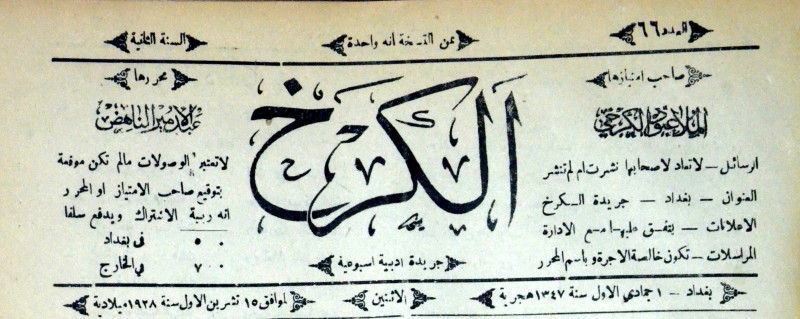 العدد ٦٦
ثمن النسخة انه واحدة
السنة الثانية
صاحب امتيازها
الملا عبود الكرخي
الرسائل – لا تعاد لاصحابها نشرت ام لم تنشر
العنوان – بغداد – جريدة الكرخ
الاعلانات – يتفق عليها مع الادارة
المراسلات – تكون خالصة الاجرة وباسم المحرر
الكرخ
جريدة ادبية اسبوعية
محررها
عبد الامير الناهض
لا تعتبر الوصولات مالم تكن موقعة
بتوقيع صاحب الامتياز او المحرر
انه ربية الاشتراك ويدفع سلفا
٥٠ فى بغداد
٧٠٠ في الخارج
بغداد – ١ جمادي الاول سنة ١٣٤٧ هجرية
الاثنين
الموافق ١٥ تشرين الاول سنة ١٩٢٨ ميلادية